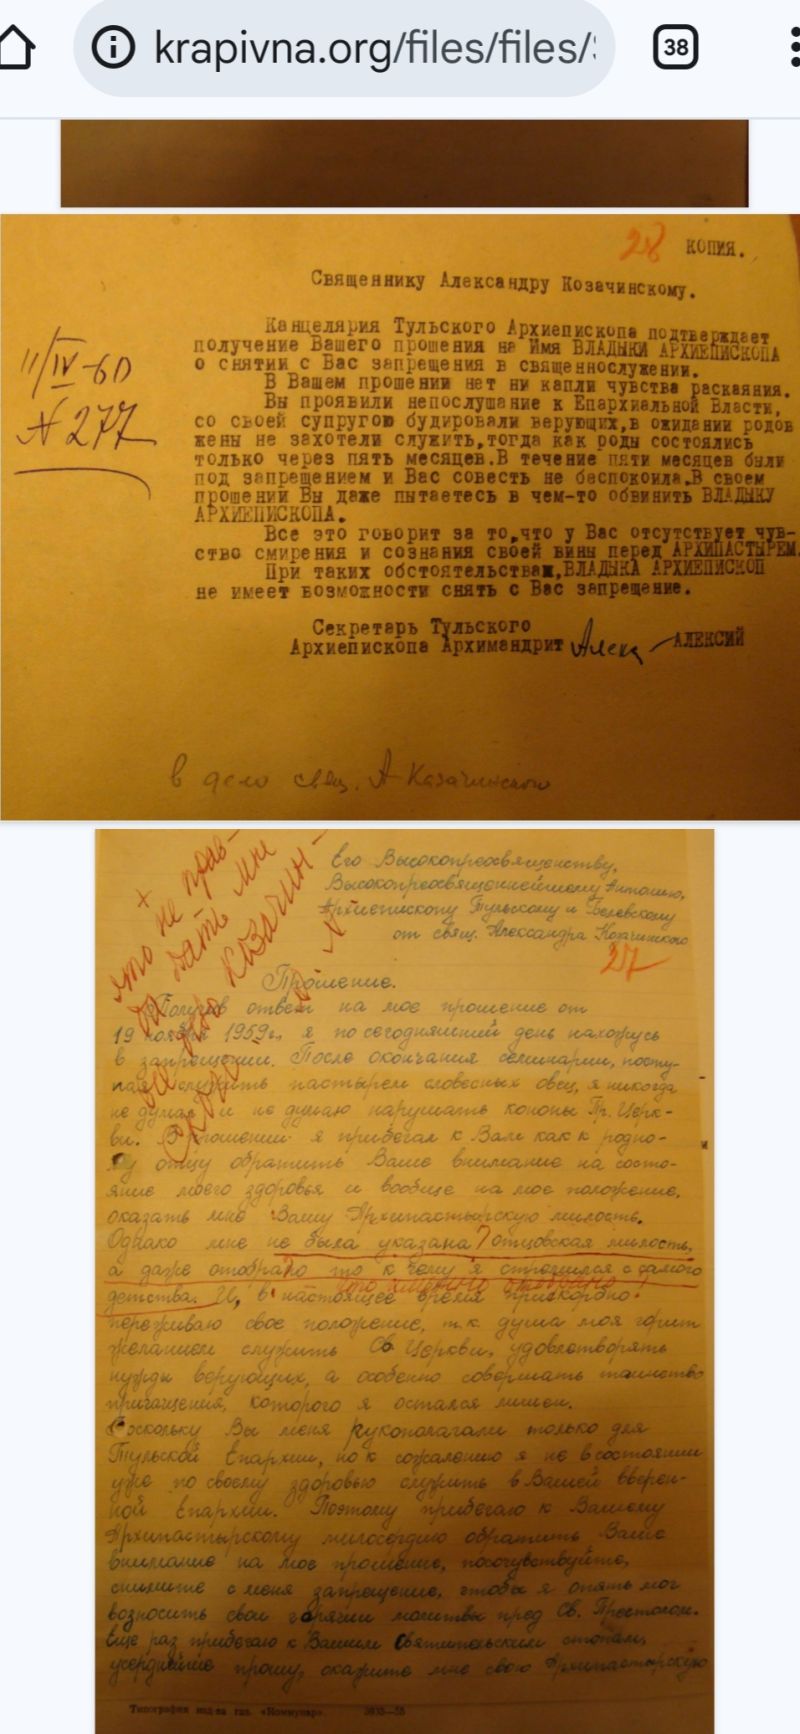 krapivna.org/files/files/
38
28
КОПИЯ.
Священнику Александру Козачинскому.
11/IV-60
N 277
Канцелярия Тульского Архиепископа подтверждает
получение Вашего прошения на Имя ВЛАДЫКИ АРХИЕПИСКОПА
о снятии с Вас запрещения в священнослужении.
В Вашем прошении нет ни капли чувства раскаяния.
Вы проявили непослушание к Епархиальной Власти,
со своей супругою будировали верующих,в ожидании родов
жены не захотели служить,тогда как роды состоялись
только через пять месяцев.В течение пяти месяцев были
под запрещением и Вас совесть не беспокоила.В своем
прошении Вы даже пытаетесь в чем-то обвинить ВЛАДЫКУ
АРХИЕПИСКОПА.
Все это говорит за то,что у Вас отсутствует чув-
ство смирения и сознания своей вины перед АРХИПАСТЫРЕМ.
При таких обстоятельствах,ВЛАДЫКА АРХИЕПИСКОП
не имеет возможности снять с Вас запрещение.
Секретарь Тульского
Архиепископа Архимандрит АЛЕКСИЙ
в дело свящ. А Казачинского
Его Высокопреосвященству,
Высокопреосвященнейшему Антонию,
Архиепископу Тульскому и Белевскому
от свящ. Александра Козачинского
27
Прошение.
Получив ответ на мое прошение от
19 ноября 1959г. я по сегодняшний день нахожусь
в запрещении. После окончания семинарии, посту-
пая служить пастырем словесных овец, я никогда
не думал и не думаю нарушать каноны Пр. Церк-
ви. В прошении я прибегал к Вам как к родно-
му отцу обратить Ваше внимание на состо-
яние моего здоровья и вообще на мое положение,
оказать мне Вашу Архипастырскую милость.
Однако мне не была указана ? отцовская милость,
а даже отобрано то к чему я стремился с самого
что именно отобрано !
детства. И, в настоящее время прискорбно
переживаю свое положение, т.к. душа моя горит
желанием служить Св. Церкви, удовлетворять
нужды верующих, а особенно совершать таинство
причащения, которого я остался лишен.
Поскольку Вы меня рукополагали только для
Тульской Епархии, но к сожалению я не в состоянии
уже по своему здоровью служить в Вашей вверен-
ной Епархии. Поэтому прибегаю к Вашему
Архипастырскому милосердию обратить Ваше
внимание на мое прошение, посочувствуйте,
снимите с меня запрещение, чтобы я опять мог
возносить свои горячии молитвы пред Св. Престолом.
Еще раз прибегаю к Вашим святительским стопам,
усерднейше прошу, окажите мне свою Архипастырскую
Типография изд-ва газ. «Коммунар»